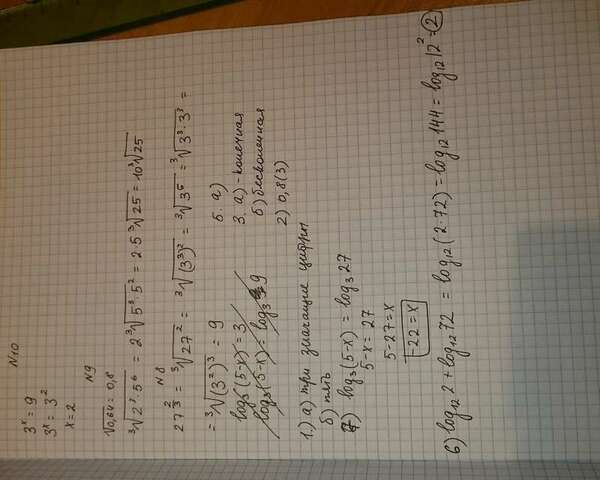 N10
3ˣ = 9
3ˣ = 3²
x = 2
N9
√0,64 = 0,8
∛(2³·5⁶) = 2∛(5³·5²) = 2·5∛25 = 10∛25
N8
27^(2/3) = ∛(27²) = ∛((3³)²) = ∛(3⁶) = ∛(3³·3³) =
= ∛((3²)³) = 9
log₃(5-x) = 3
log₃(5-x) = log₃ 9
5. а)
3. а) - конечная
б) бесконечная
2) 0,8(3)
1.) а) три значащие цифры
б) пять
7) log₃(5-x) = log₃27
5-x = 27
5-27 = x
-22 = x
6) log₁₂2 + log₁₂72 = log₁₂(2·72) = log₁₂144 = log₁₂12² = 2